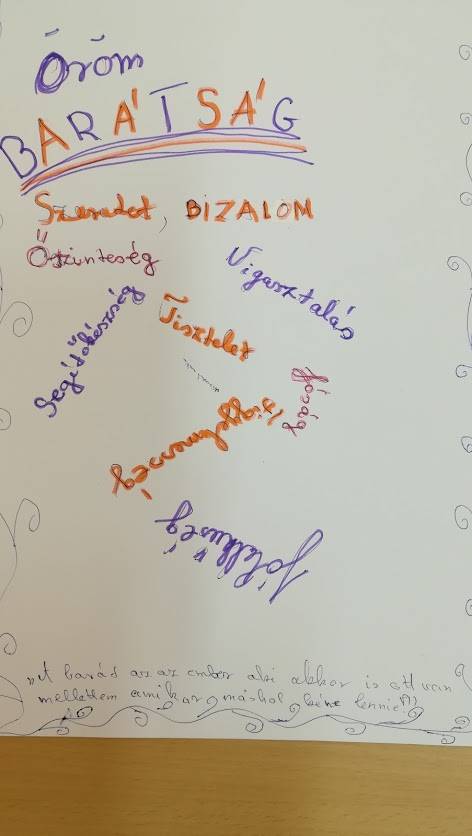 Öröm
BARÁTSÁG
Szeretet, BIZALOM
Őszinteség
Vigasztalás
Segítőkészség
Tisztelet
Jóság
Függetlenség
Jólelkűség
"A barád az az ember aki akkor is ott van
mellettem amikor máshol kéne lennie!"